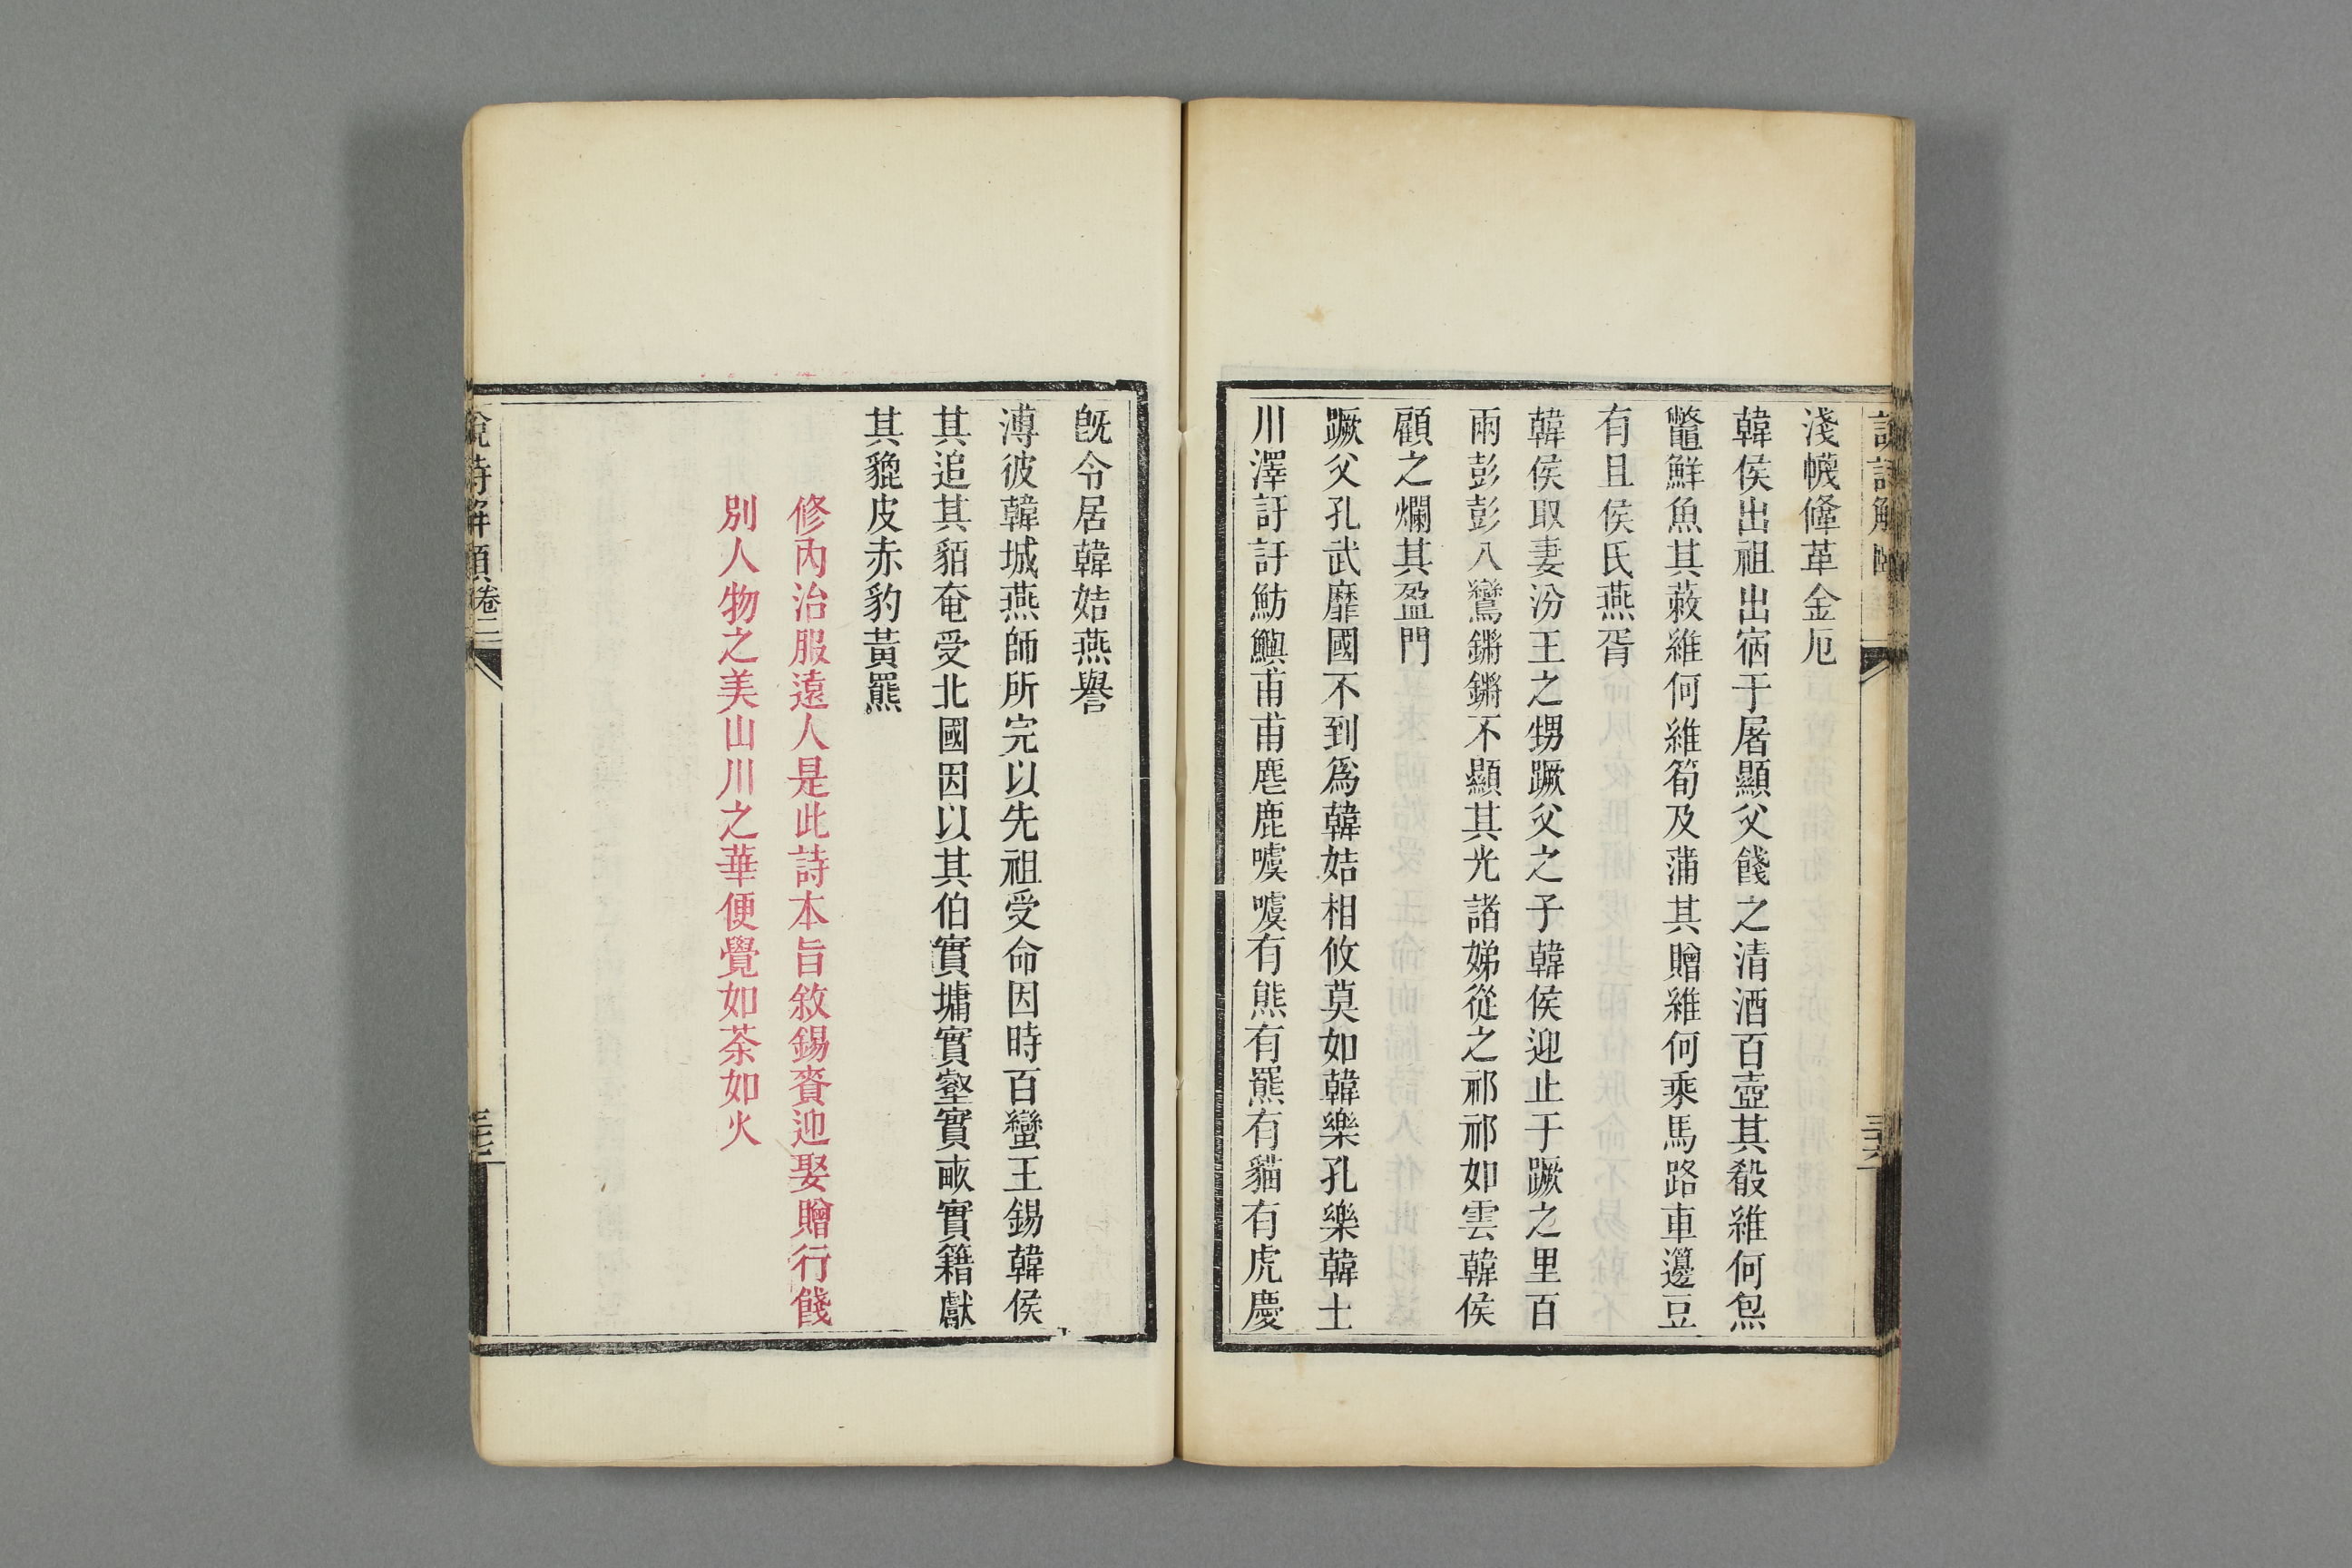 淺幭鞗革金厄
韓侯出祖出宿于屠顯父餞之清酒百壺其殽維何炰
鼈鮮魚其蔌維何維筍及蒲其贈維何乘馬路車籩豆
有且侯氏燕胥
韓侯取妻汾王之甥蹶父之子韓侯迎止于蹶之里百
兩彭彭八鸞鏘鏘不顯其光諸娣從之祁祁如雲韓侯
顧之爛其盈門
蹶父孔武靡國不到爲韓姞相攸莫如韓樂孔樂韓土
川澤訏訏魴鱮甫甫麀鹿噳噳有熊有羆有貓有虎慶
既令居韓姞燕譽
溥彼韓城燕師所完以先祖受命因時百蠻王錫韓侯
其追其貊奄受北國因以其伯實墉實壑實畝實籍獻
其貔皮赤豹黃羆
修內治服遠人是此詩本旨敘錫賚迎娶贈行餞
別人物之美山川之華便覺如荼如火
說詩解頤卷二
三七